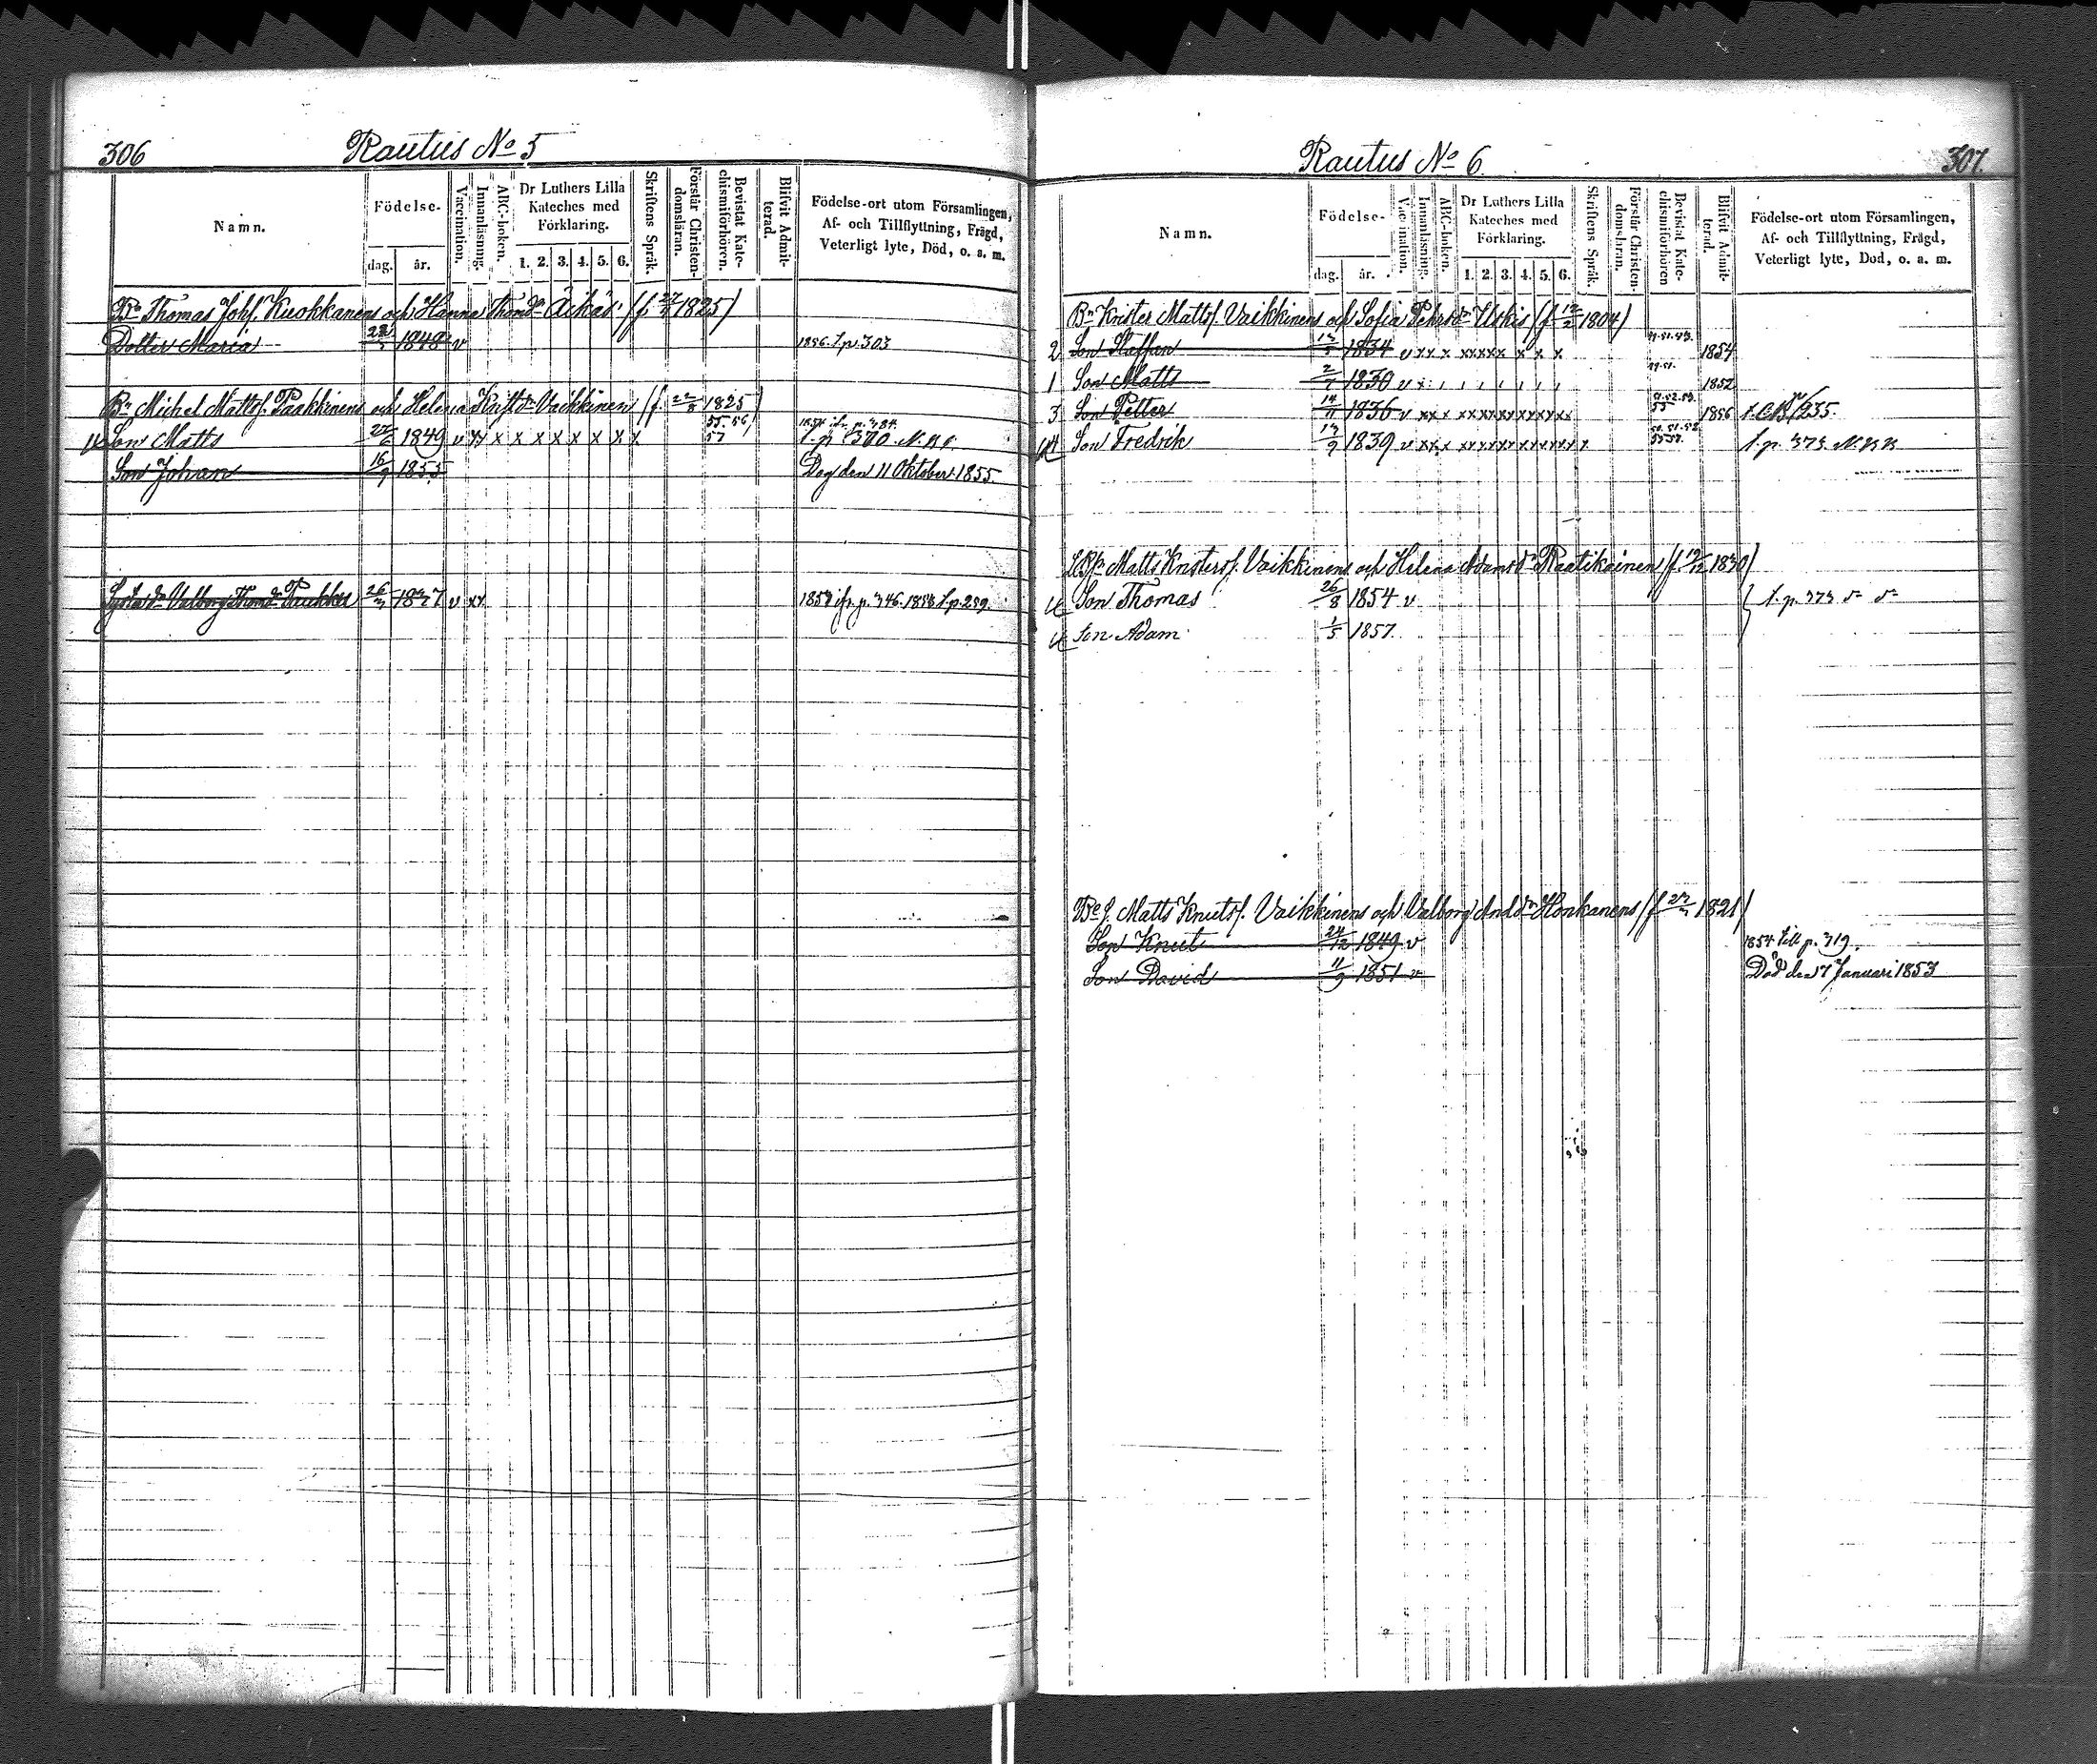 306 Rautus No 5
Namn.
Födelse-
dag. år.
Vaccination.
Innanläsning.
ABC-boken.
Dr Luthers Lilla Kateches med Förklaring.
1. 2. 3. 4. 5. 6.
Skriftens Språk.
Förstår Christen-domsläran.
Bevistat Kate-chismiförhören.
Blifvit Admit-terad.
Födelse-ort utom Församlingen, Af- och Tillflyttning, Frägd, Veterligt lyte, Död, o. a. m.
Bn Thomas Johs. Kuokkanens och Hanna Thomdr Äikäs (f. 27 1825)
Dotter Maria 1848 v 1856 t. p. 303
Bn Michel Mattss. Paakkinens och Helena Kristdr Vaikkinen (f. 22/8 1825)
Son Matts 1849 v xx x x x x x x x x 55. 56 57 t. p. 370 N. K. B.
Son Johan 16/9 1855 Dog den 11 Oktober 1855.
Valborg Thomdr Pukkes 26 1837 v xx 1858 t. p. 259.
Rautus No 6. 307.
Namn.
Födelse-
dag. år.
Vaccination.
Innanläsning.
ABC-boken.
Dr Luthers Lilla Kateches med Förklaring.
1. 2. 3. 4. 5. 6.
Skriftens Språk.
Förstår Christen-domsläran.
Bevistat Kate-chismiförhören
Blifvit Admit-terad.
Födelse-ort utom Församlingen, Af- och Tillflyttning, Frägd, Veterligt lyte, Död, o. a. m.
Bn Krister Mattss. Vaikkinens och Sofia Pehrsdr Uskis (f. 1804)
2 Son Staffan 1834 v xx x xxxxx x x x 49.51.53. 1854
1 Son Matts 1830 v 49.51. 1852
3 Son Petter 14/11 1836 v xx x xxxxxxxxxxx 51.52.53. 55 1856
Son Fredrik 13/9 1839 v xx x xxxxxxxxxxx x t. p. 373. N. K. B.
Matts Kristers. Vaikkinens och Helena Adamsdr Raatikainen (f. 1830)
Son Thomas 26/8 1854 v t. p. 373
Son Adam 1/5 1857.
Matts Knuts. Vaikkinens och Valborg Andrdr Honkanens (f. 1821)
Son Knut 24/12 1849 v 1854 till p. 319.
Son David 11/9 1851 v Död den 17 Januari 1853